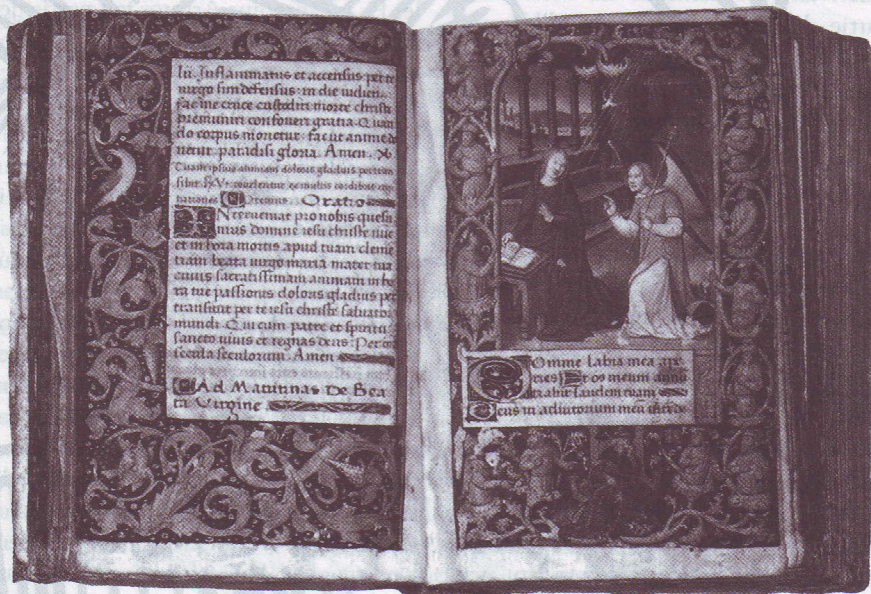 lii. Inflammatus et accensus per te
virgo sim defensus: in die iudicii.
fac me cruce custodiri morte christi
premuniri confoveri gratia. Quan
do corpus morietur: fac ut anime do
netur paradisi gloria. Amen.
Tuam ipsius animam doloris gladius pertran
sibit. Ut revelentur ex multis cordibus cogi
tationes Oremus. Oratio
INterveniat pro nobis quesu
mus domine iesu christe nuc
et in hora mortis apud tuam cleme
tiam beata virgo maria mater tua
cuius sacratissimam animam in ho
ra tue passionis doloris gladius per
transivit per te iesu christe salvator
mundi. Qui cum patre et spiritu
sancto vivis et regnas deus. Per
secula seculorum. Amen
Ad Matutinas De Bea
ta Virgine
Domine labia mea ape
ries Et os meum annu
tiabit laudem tuam
Deus in adiutorium meu